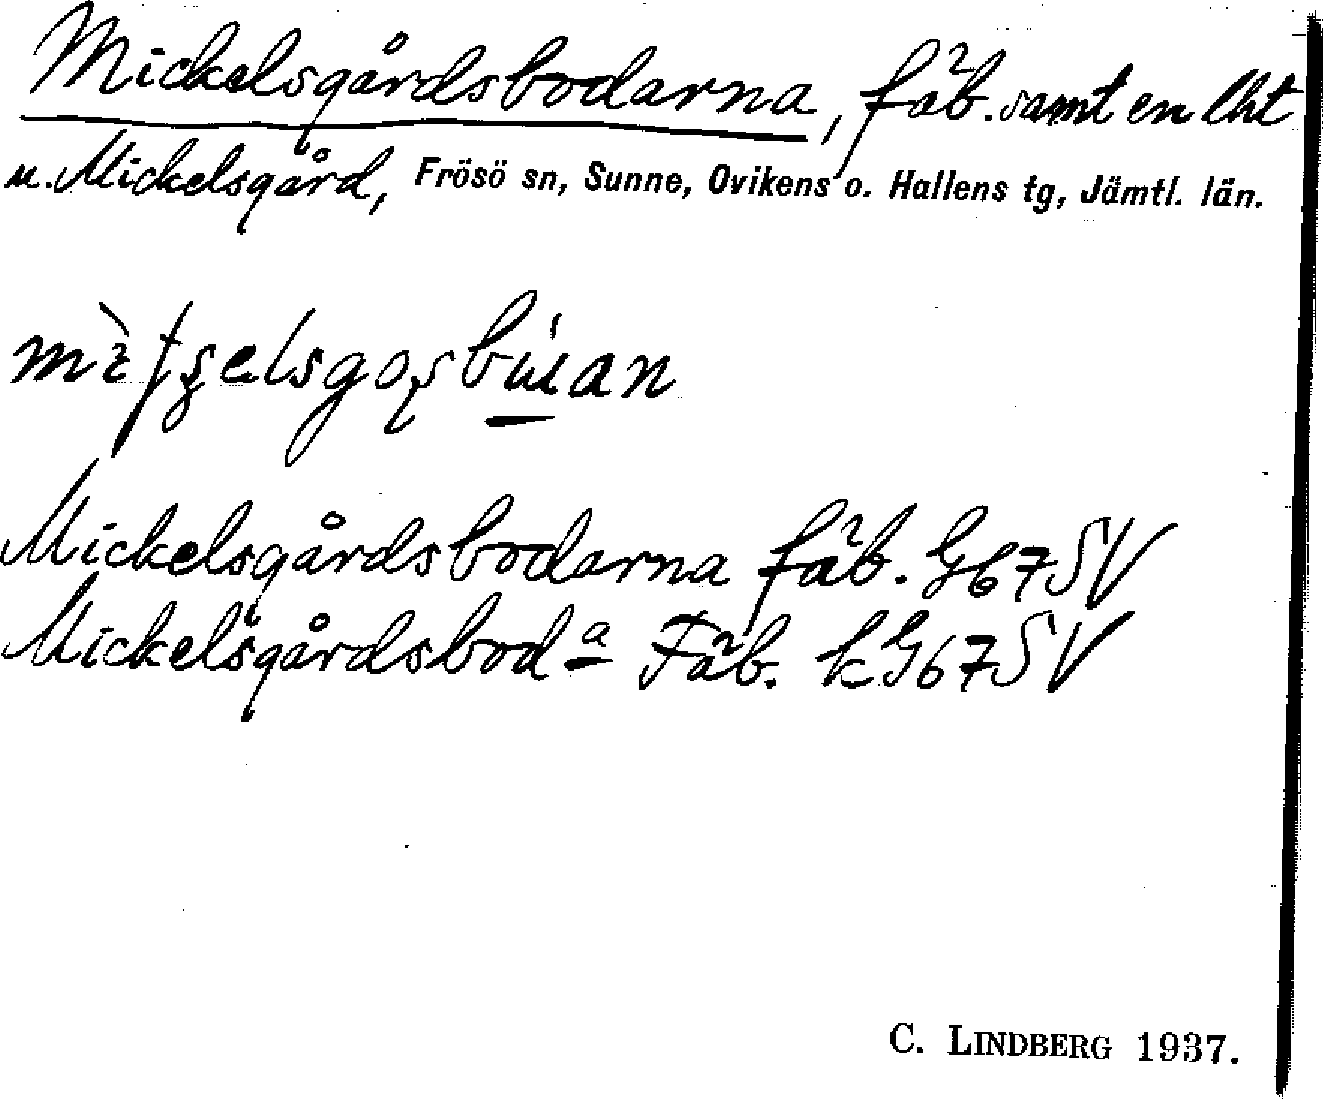 Mickelsgårdsbodarna, fäb. samt en lht
u. Mickelsgård, Frösö sn, Sunne, Ovikens o. Hallens tg, Jämtl. län.
Mickelsgårdsbodarna fäb. G67SV
Mickelsgårdsbod a Fäb. kG67SV
C. LINDBERG 1937.